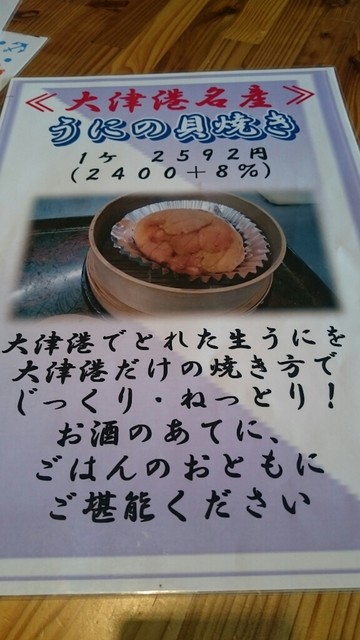 ≪大津港名産≫
うにの貝焼き
1ケ 2592円
(2400+8%)
大津港でとれた生うにを
大津港だけの焼き方で
じっくり・ねっとり!
お酒のあてに、
ごはんのおともに
ご堪能ください